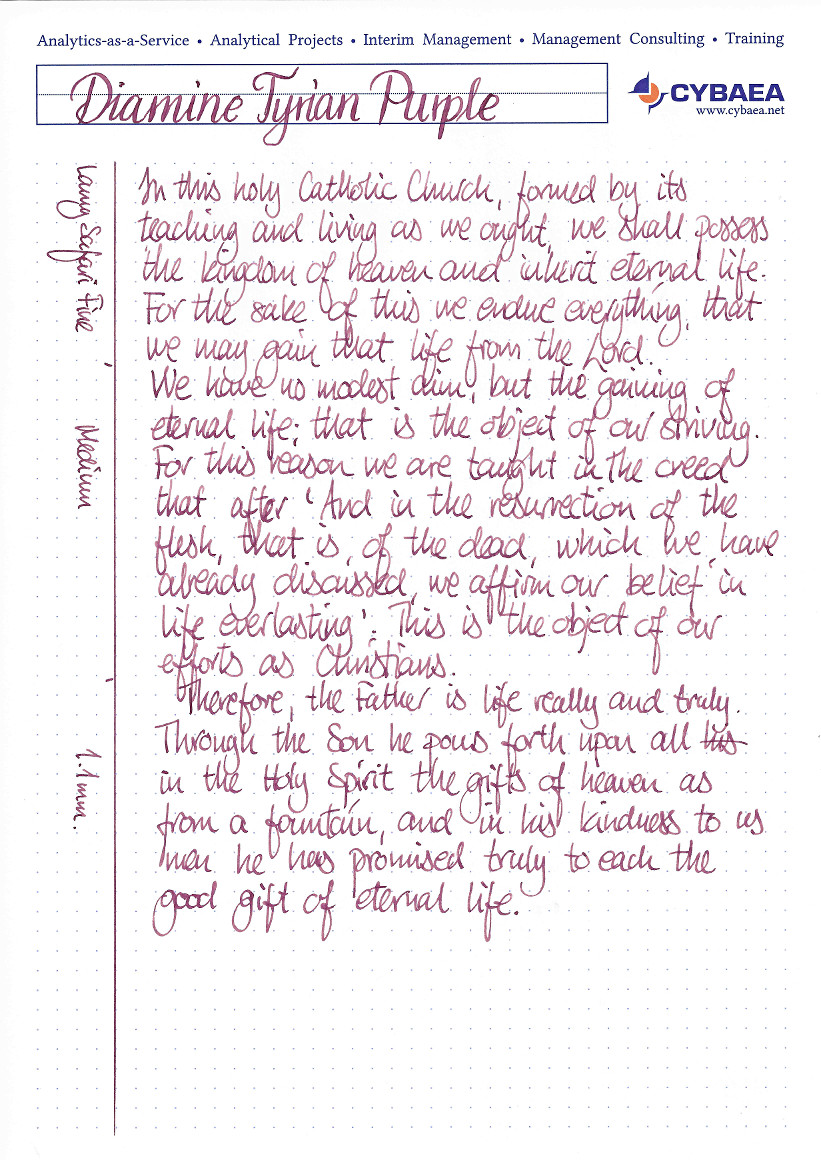 Analytics-as-a-Service • Analytical Projects • Interim Management • Management Consulting • Training
Diamine Tyrian Purple
CYBAEA
www.cybaea.net
Lamy Safari Fine
Medium
1.1mm.
In this holy Catholic Church, formed by its
teaching and living as we ought, we shall possess
the kingdom of heaven and inherit eternal life.
For the sake of this we endue everything, that
we may gain that life from the Lord.
We have no modest aim, but the gaining of
eternal life; that is the object of our striving.
For this reason we are taught in the creed
that after 'And in the resurrection of the
flesh, that is, of the dead, which we have
already discussed, we affirm our belief 'in
life everlasting'. This is the object of our
efforts as Christians.
Therefore, the Father is life really and truly.
Through the Son he pous forth upon all his
in the Holy Spirit the gifts of heaven as
from a fountain, and in his kindness to us
men he has promised truly to each the
good gift of eternal life.